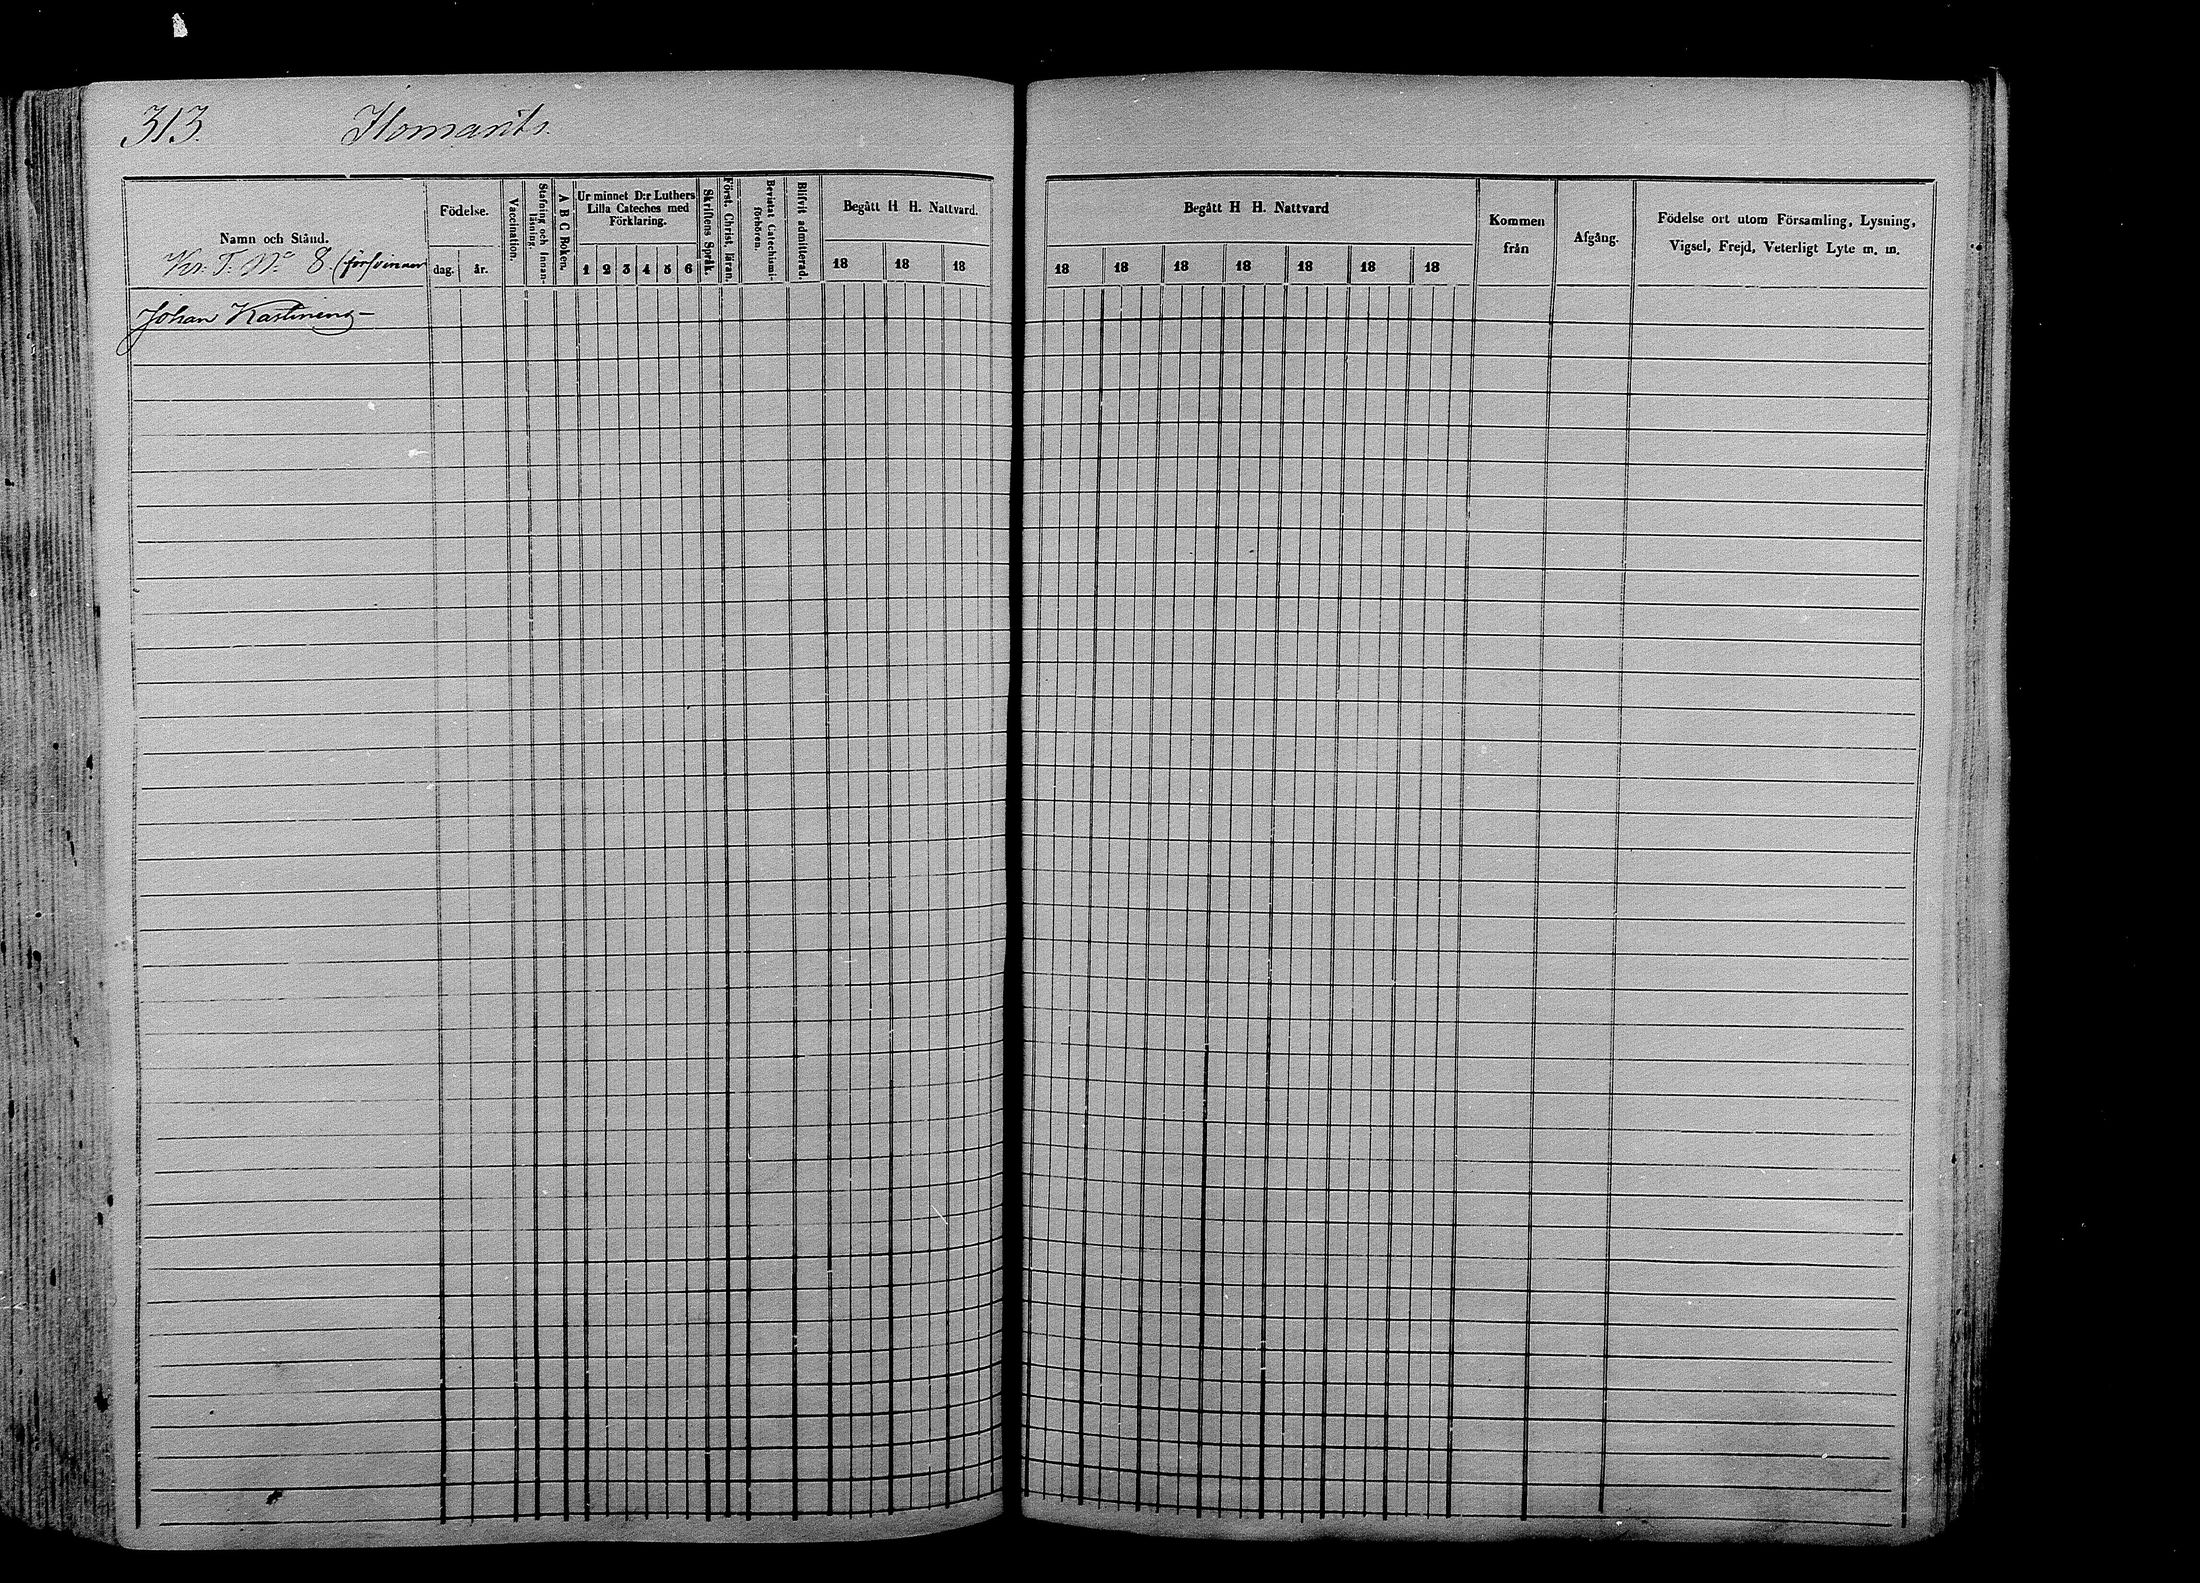 313. Ilomants.
Namn och Stånd.
Kr. T. No 8 (försvinner
Födelse.
dag. år.
Vaccination.
Stafning och Innanläsning.
A B C Boken.
Ur minnet D:r Luthers Lilla Cateches med Förklaring.
1 2 3 4 5 6
Skriftens Språk.
Först. Christ. läran.
Bevistat Catechismi-förhören.
Blifvit admitterad.
Begått H H. Nattvard.
18 18 18
Begått H H. Nattvard
18 18 18 18 18 18 18
Kommen från
Afgång.
Födelse ort utom Församling, Lysning,
Vigsel, Frejd, Veterligt Lyte m. m.
Johan